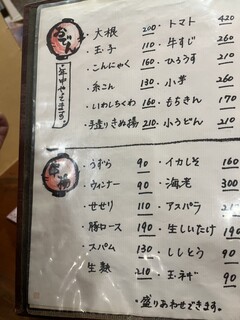 おでん
年中やってます。
・大根 200 ・トマト 420
・玉子 110 ・牛すじ 260
・こんにゃく 160 ・ひろうす 210
・糸こん 130 ・小芋 260
・いわしちくわ 160 ・もちきん 170
・手造りきぬ揚 210 ・小うどん 210
串物
・うずら 90 ・イカしそ 160
・ウィンナー 90 ・海老 300
・せせり 110 ・アスパラ
・豚ロース 190 ・生しいたけ 190
・スパム 130 ・ししとう 90
・生麩 210 ・玉ネギ 90
・盛りあわせできます。